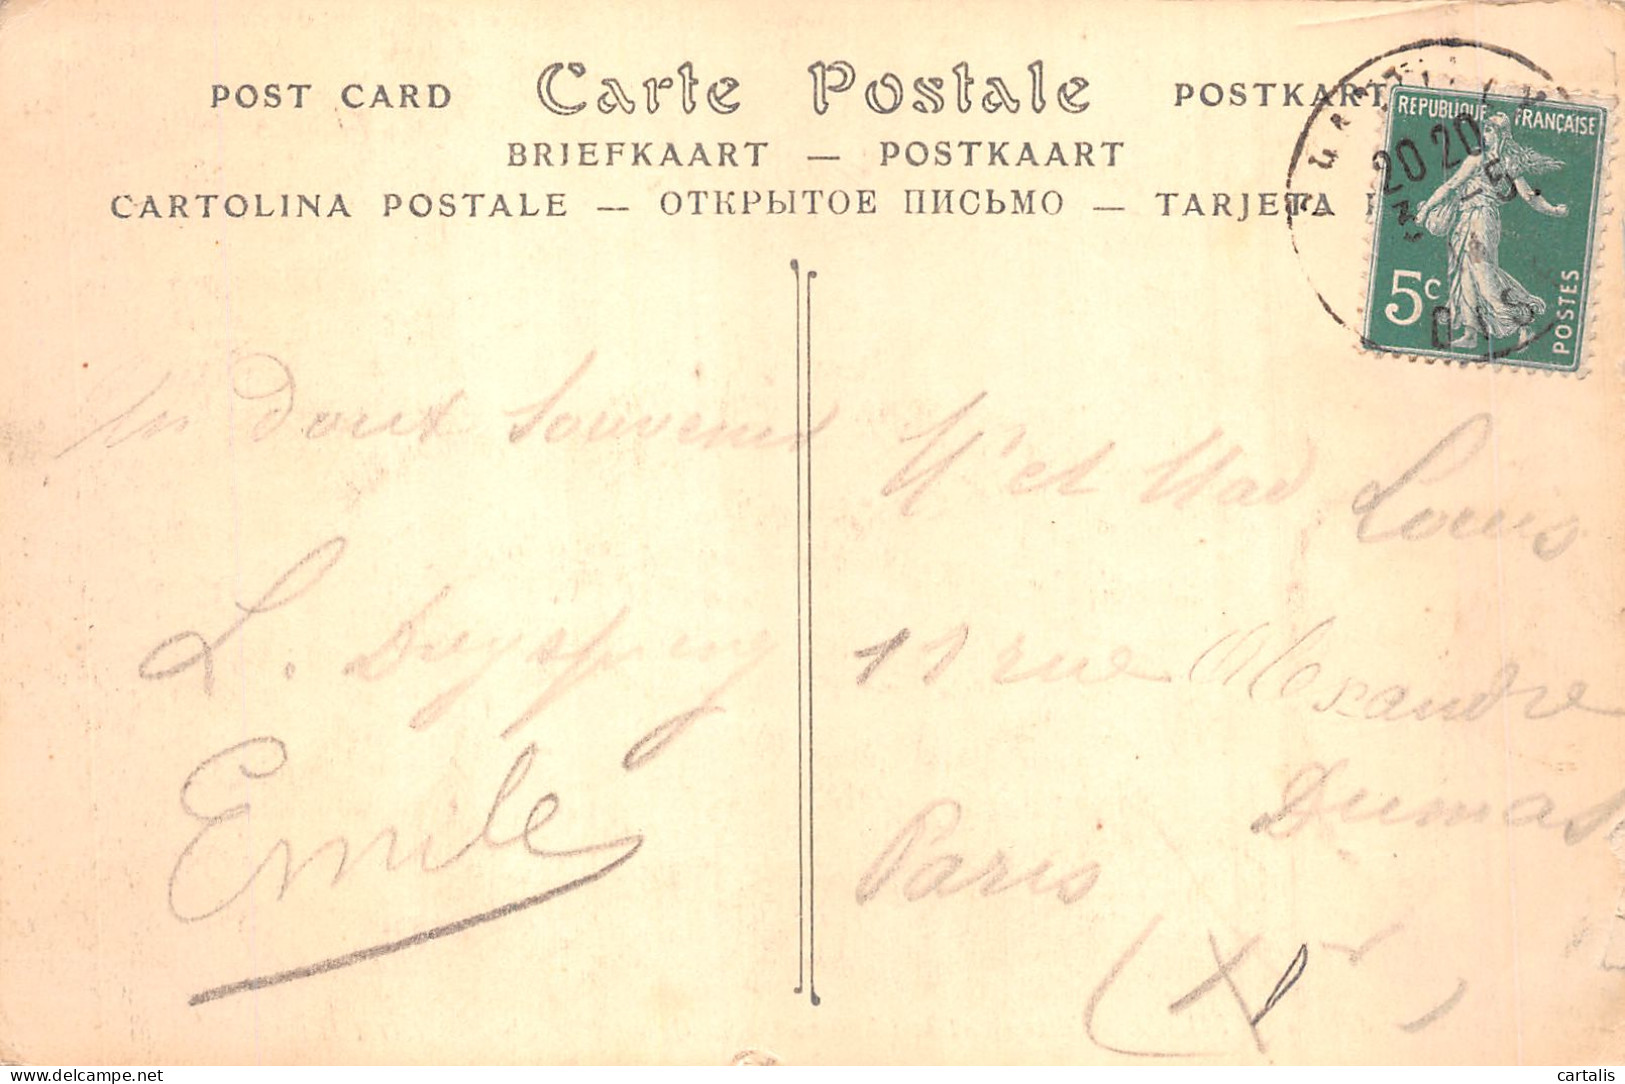 POST CARD Carte Postale POSTKART
BRIEFKAART — POSTKAART
CARTOLINA POSTALE — ОТКРЫТОЕ ПИСЬМО — TARJETA
REPUBLIQUE FRANÇAISE
20 20
-5
5c
POSTES
un doux Souvenir
L.
Emile
Mr et Mad Louis
11 rue Alexandre
Dumas
Paris
cartalis
delcampe.net